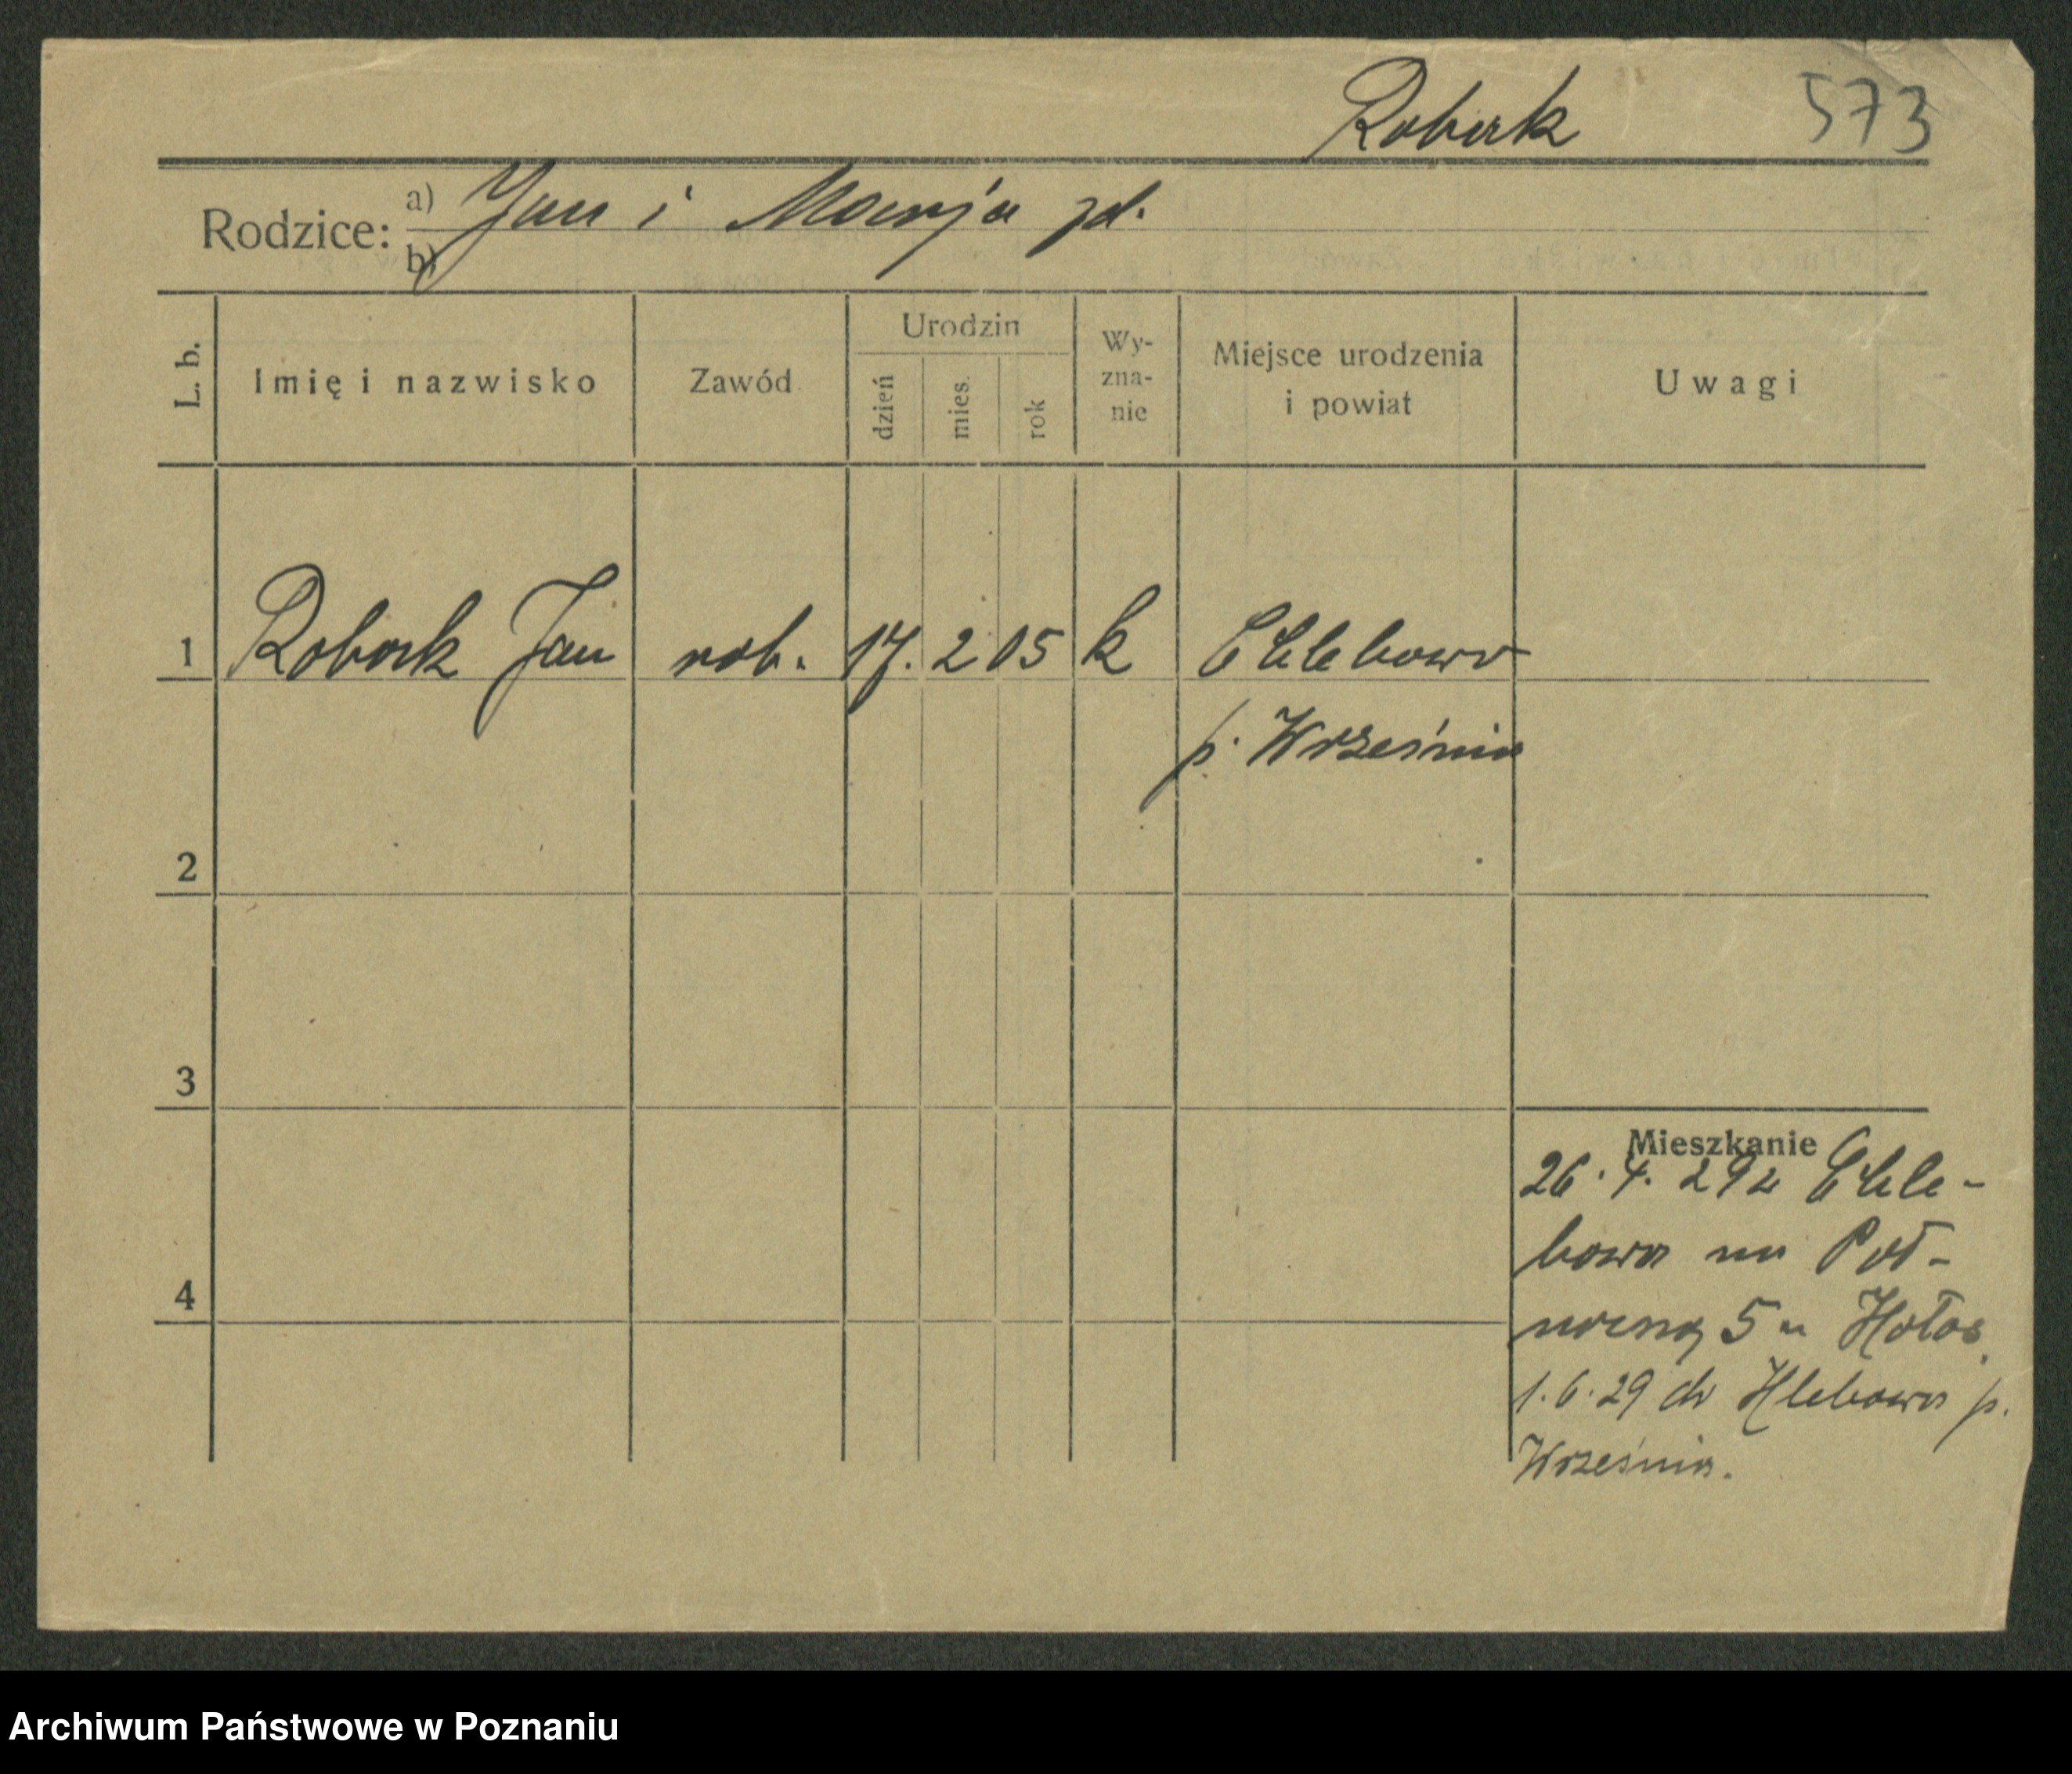 Robak 573
Rodzice: a) Jan i Marja zd.
b)
L. b. Imię i nazwisko Zawód Urodzin dzień mies. rok Wy-zna-nie Miejsce urodzenia i powiat Uwagi
1 Robak Jan rob. 17. 2 05 k Chlebowo
p. Września
2
3
Mieszkanie
26. 4. 29 z Chle-
4 bowa na Pół-
nocną 5 u
1. 6. 29 do Hlebowa p.
Września.
Archiwum Państwowe w Poznaniu